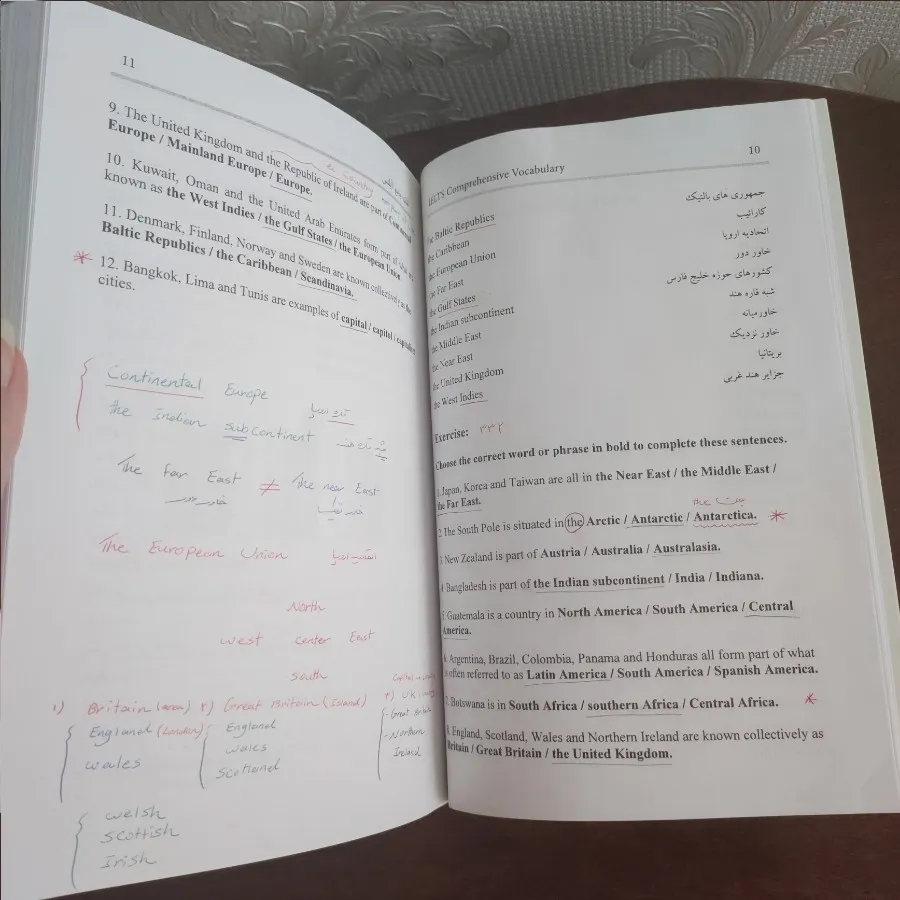 10
IELTS Comprehensive Vocabulary
the Baltic Republics جمهوری های بالتیک
the Caribbean کارائیب
the European Union اتحادیه اروپا
the Far East خاور دور
the Gulf States کشورهای حوزه خلیج فارس
the Indian subcontinent شبه قاره هند
the Middle East خاورمیانه
the Near East خاور نزدیک
the United Kingdom بریتانیا
the West Indies جزایر هند غربی
Exercise:
Choose the correct word or phrase in bold to complete these sentences.
1. Japan, Korea and Taiwan are all in the Near East / the Middle East /
the Far East.
2. The South Pole is situated in the Arctic / Antarctic / Antarctica.
3 New Zealand is part of Austria / Australia / Australasia.
4 Bangladesh is part of the Indian subcontinent / India / Indiana.
5. Guatemala is a country in North America / South America / Central
America.
6. Argentina, Brazil, Colombia, Panama and Honduras all form part of what
is often referred to as Latin America / South America / Spanish America.
7. Botswana is in South Africa / southern Africa / Central Africa.
8. England, Scotland, Wales and Northern Ireland are known collectively as
Britain / Great Britain / the United Kingdom.
11
9. The United Kingdom and the Republic of Ireland are part of Continental
Europe / Mainland Europe / Europe.
10. Kuwait, Oman and the United Arab Emirates form part of what is
known as the West Indies / the Gulf States / the European Union
11. Denmark, Finland, Norway and Sweden are known collectively as the
Baltic Republics / the Caribbean / Scandinavia.
12. Bangkok, Lima and Tunis are examples of capital / capitol /
cities.
Continental Europe
the Indian subcontinent
The far East ≠ The near East
خاور دور
The European Union
North
west center East
south
1) Britain (area) ۲) Great Britain (Island) ۳) UK
England (London) England - Great Britain
wales wales - Northern
scotland Ireland
welsh
scottish
Irish